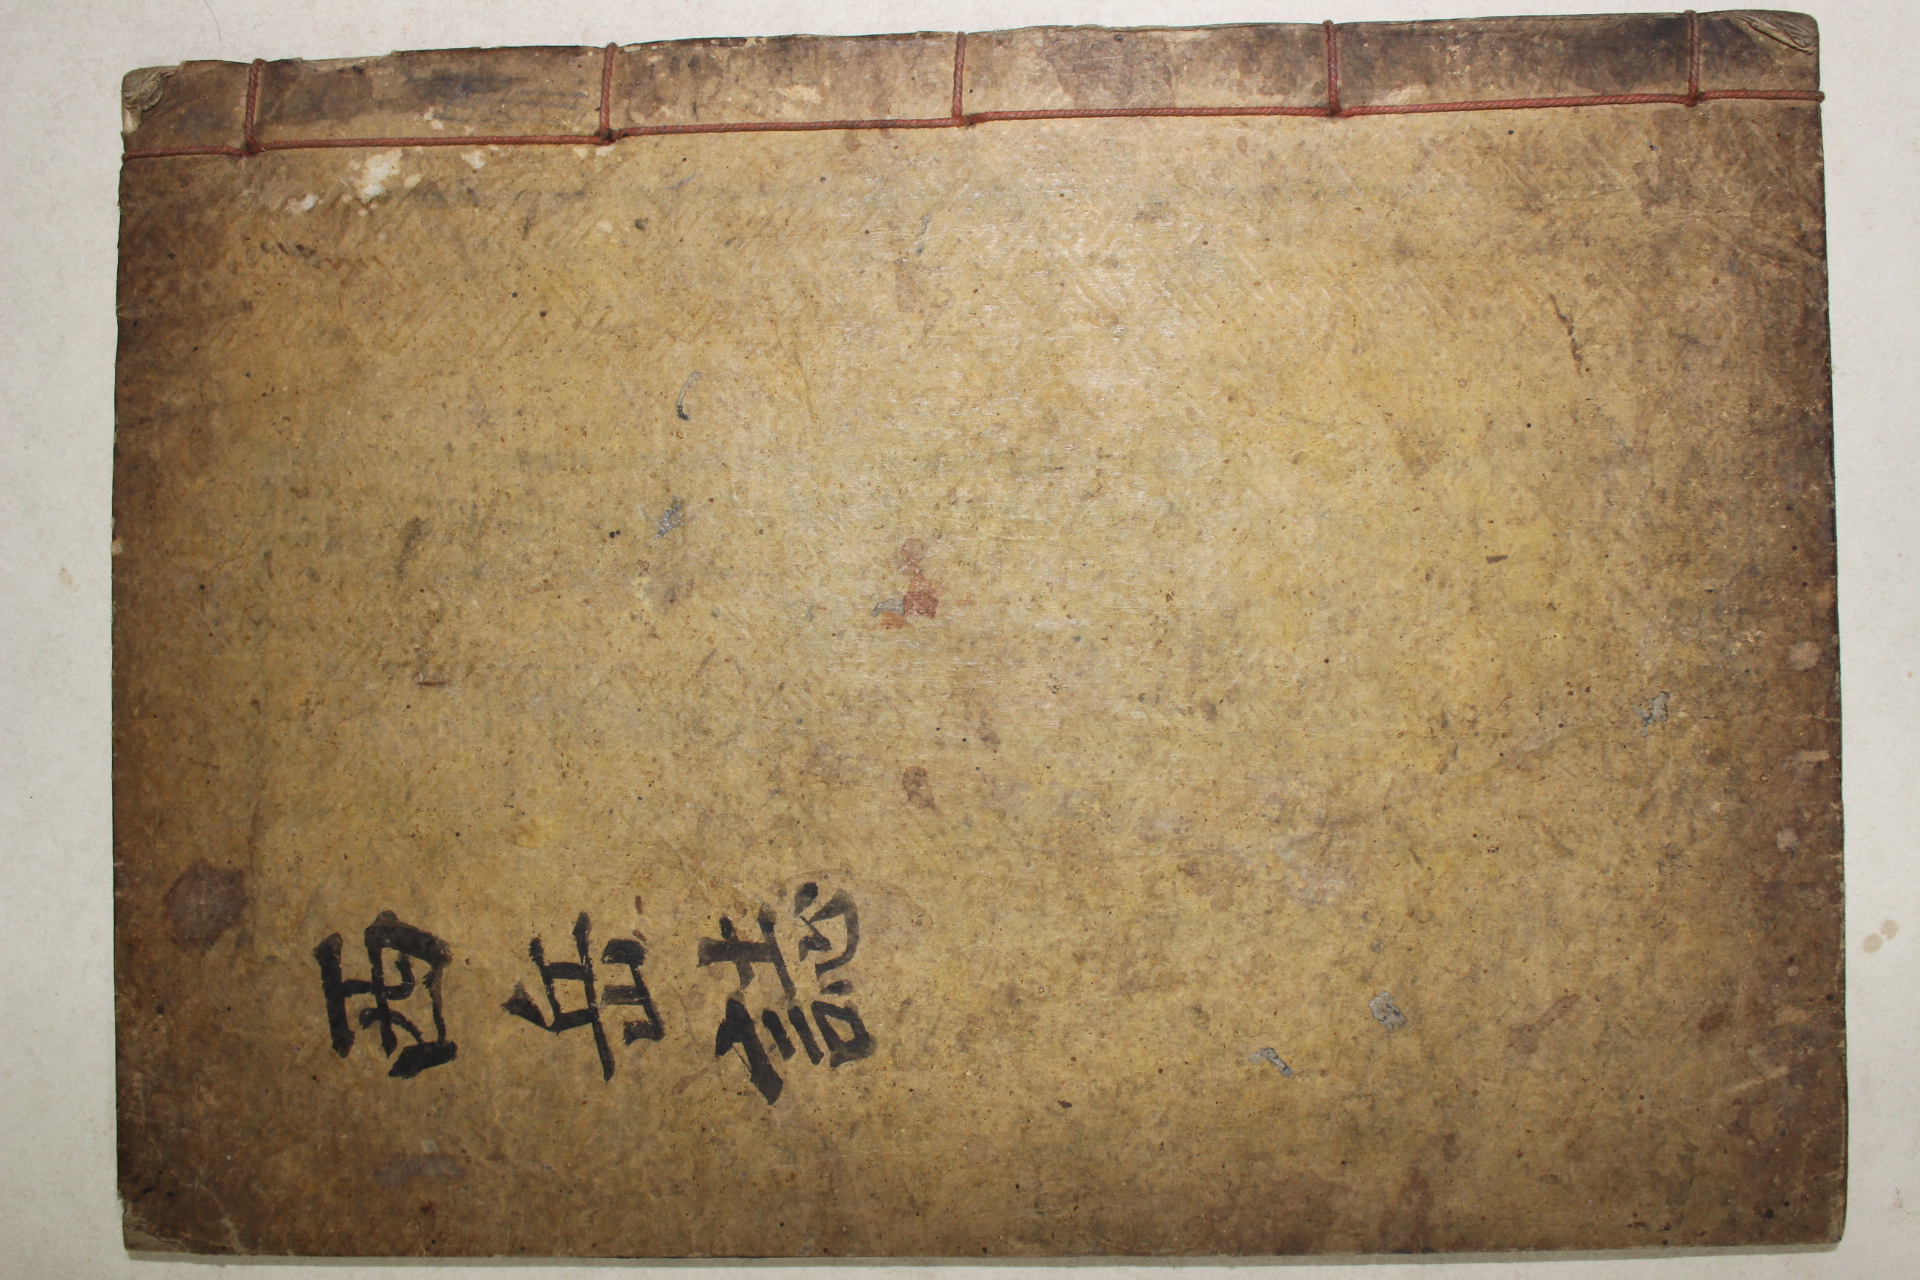 西岳誌